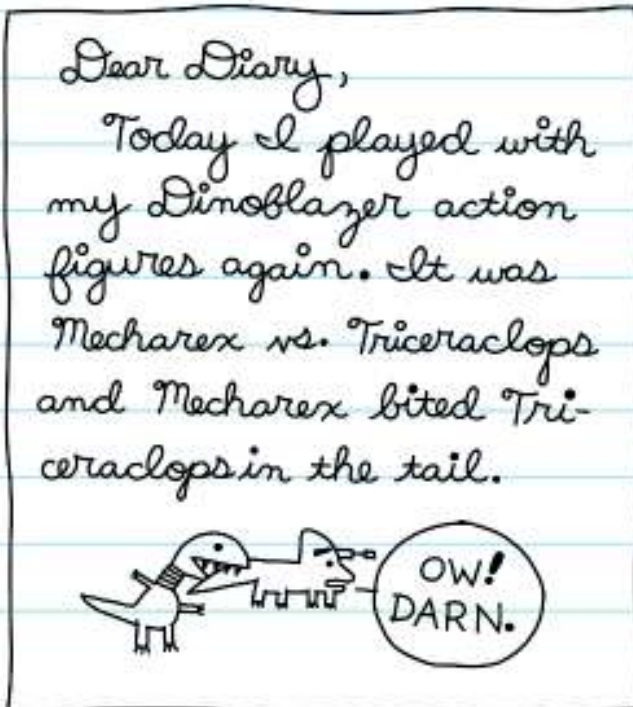 Dear Diary,
Today I played with
my Dinoblazer action
figures again. It was
Mecharex vs. Triceraclops
and Mecharex bited Tri-
ceraclops in the tail.
OW!
DARN.